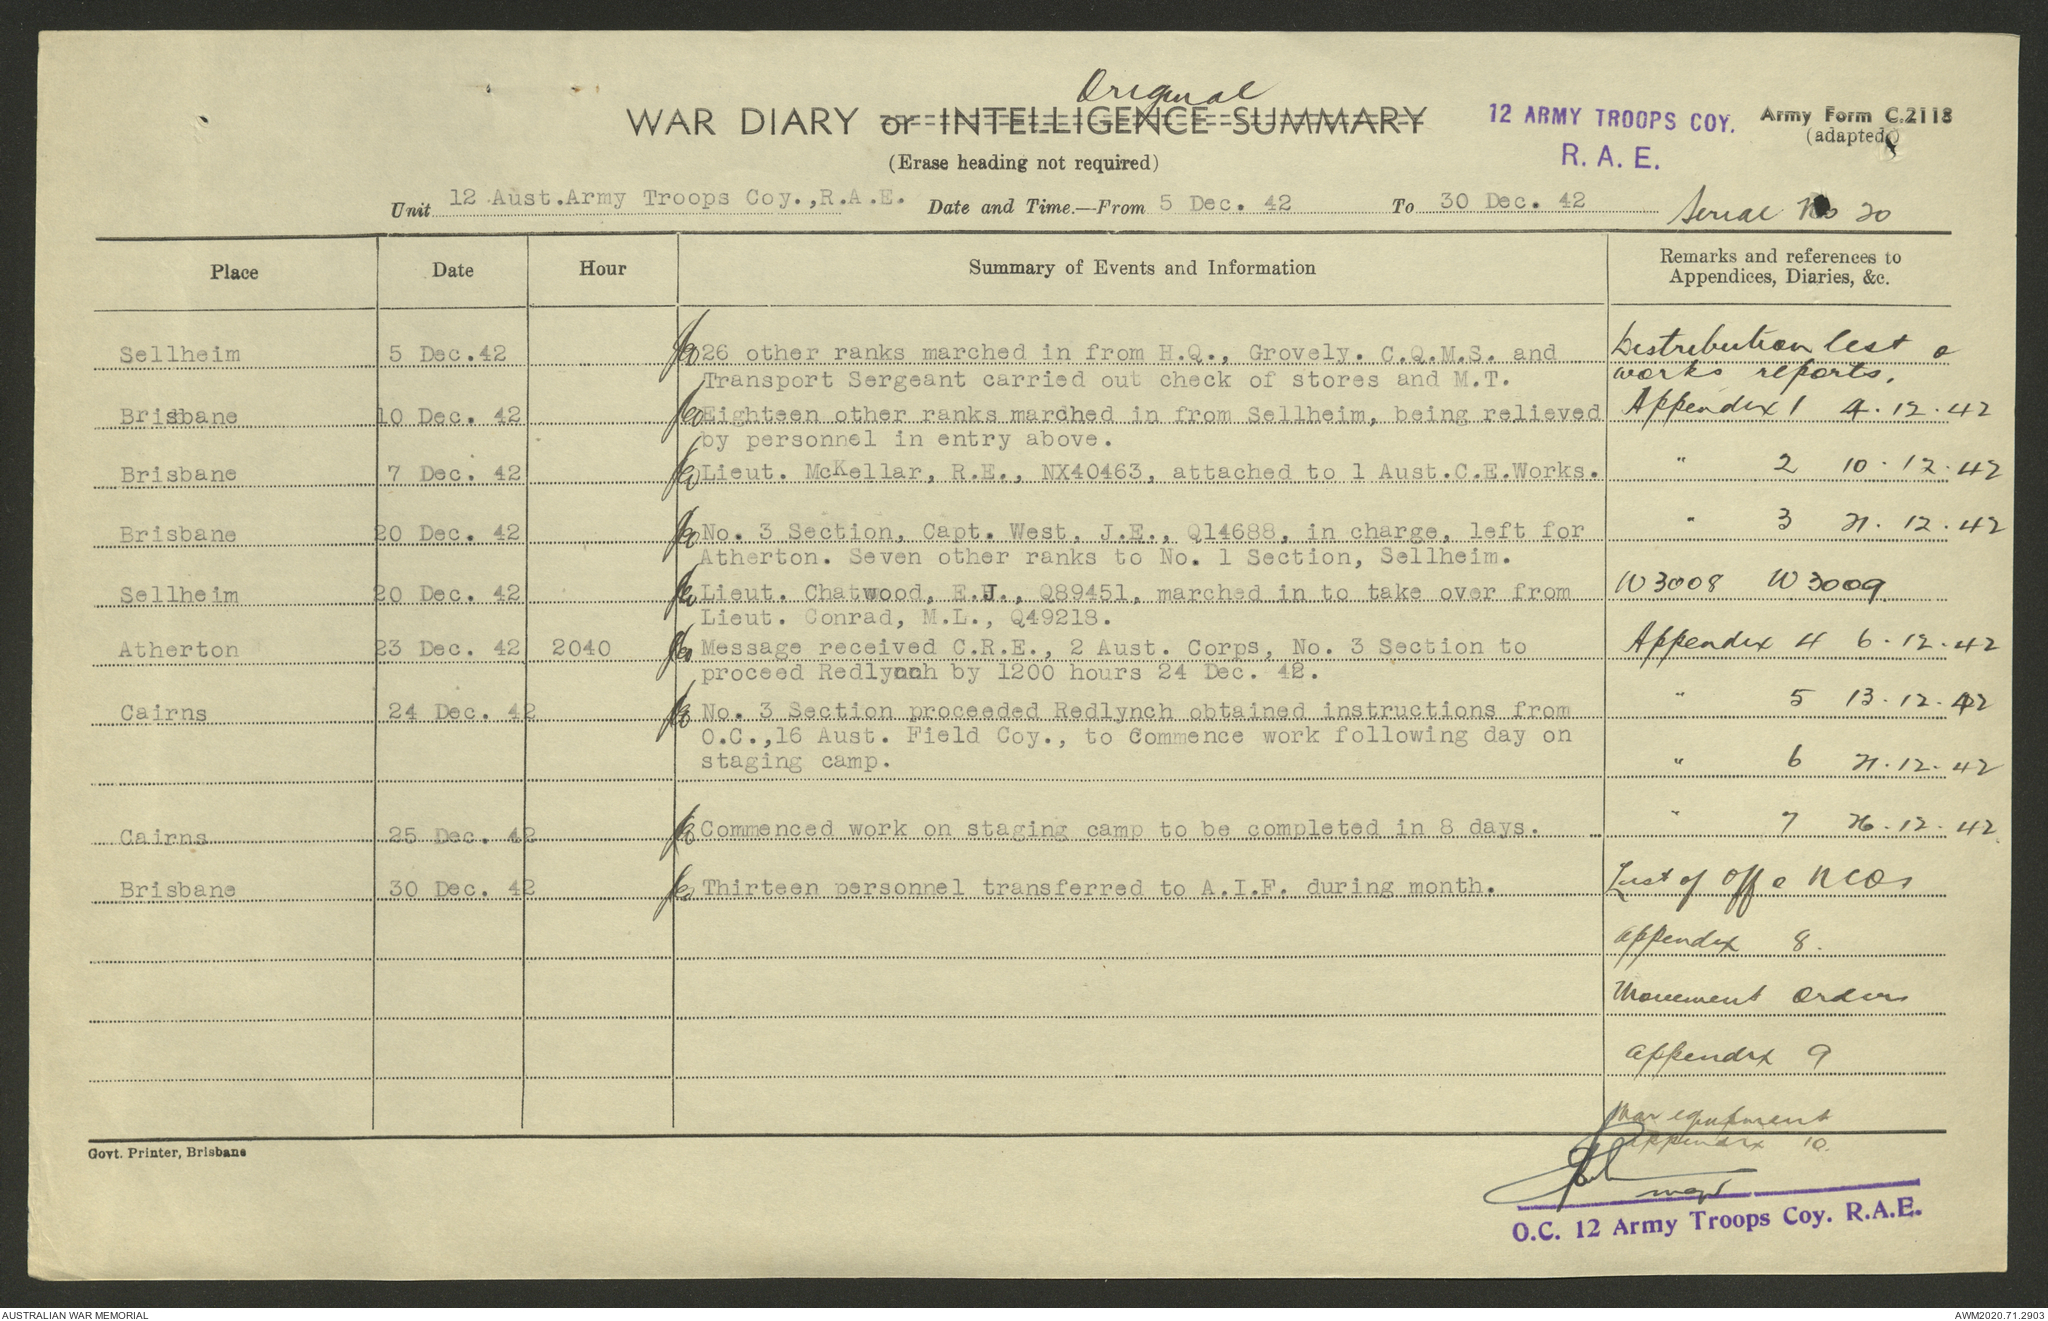 Original
WAR DIARY or INTELLIGENCE SUMMARY
(Erase heading not required)
12 ARMY TROOPS COY.
R. A. E.
Army Form C.2118
(adapted)
Unit 12 Aust.Army Troops Coy.,R.A.E. Date and Time.—From 5 Dec. 42 To 30 Dec. 42 Serial No 20
Place Date Hour Summary of Events and Information Remarks and references to
Appendices, Diaries, &c.
Sellheim 5 Dec.42 26 other ranks marched in from H.Q., Grovely. C.Q.M.S. and Distribution list &
Transport Sergeant carried out check of stores and M.T. works reports.
Brisbane 10 Dec. 42 Eighteen other ranks marched in from Sellheim, being relieved Appendix 1 4.12.42
by personnel in entry above.
Brisbane 7 Dec. 42 Lieut. McKellar, R.E., NX40463, attached to 1 Aust.C.E.Works. " 2 10.12.42
Brisbane 20 Dec. 42 No. 3 Section, Capt. West, J.E., Q14688, in charge, left for " 3 21.12.42
Atherton. Seven other ranks to No. 1 Section, Sellheim.
Sellheim 20 Dec. 42 Lieut. Chatwood, E.J., Q89451, marched in to take over from W3008 W3009
Lieut. Conrad, M.L., Q49218.
Atherton 23 Dec. 42 2040 Message received C.R.E., 2 Aust. Corps, No. 3 Section to Appendix 4 6.12.42
proceed Redlynch by 1200 hours 24 Dec. 42.
Cairns 24 Dec. 42 No. 3 Section proceeded Redlynch obtained instructions from " 5 13.12.42
O.C.,16 Aust. Field Coy., to commence work following day on
staging camp. " 6 21.12.42
Cairns 25 Dec. 42 Commenced work on staging camp to be completed in 8 days. " 7 26.12.42
Brisbane 30 Dec. 42 Thirteen personnel transferred to A.I.F. during month. List of Off & NCOs
Appendix 8.
Movement Orders
Appendix 9
War equipment
Appendix 10.
Govt. Printer, Brisbane
Major
O.C. 12 Army Troops Coy. R.A.E.
AUSTRALIAN WAR MEMORIAL
AWM2020.71.2903